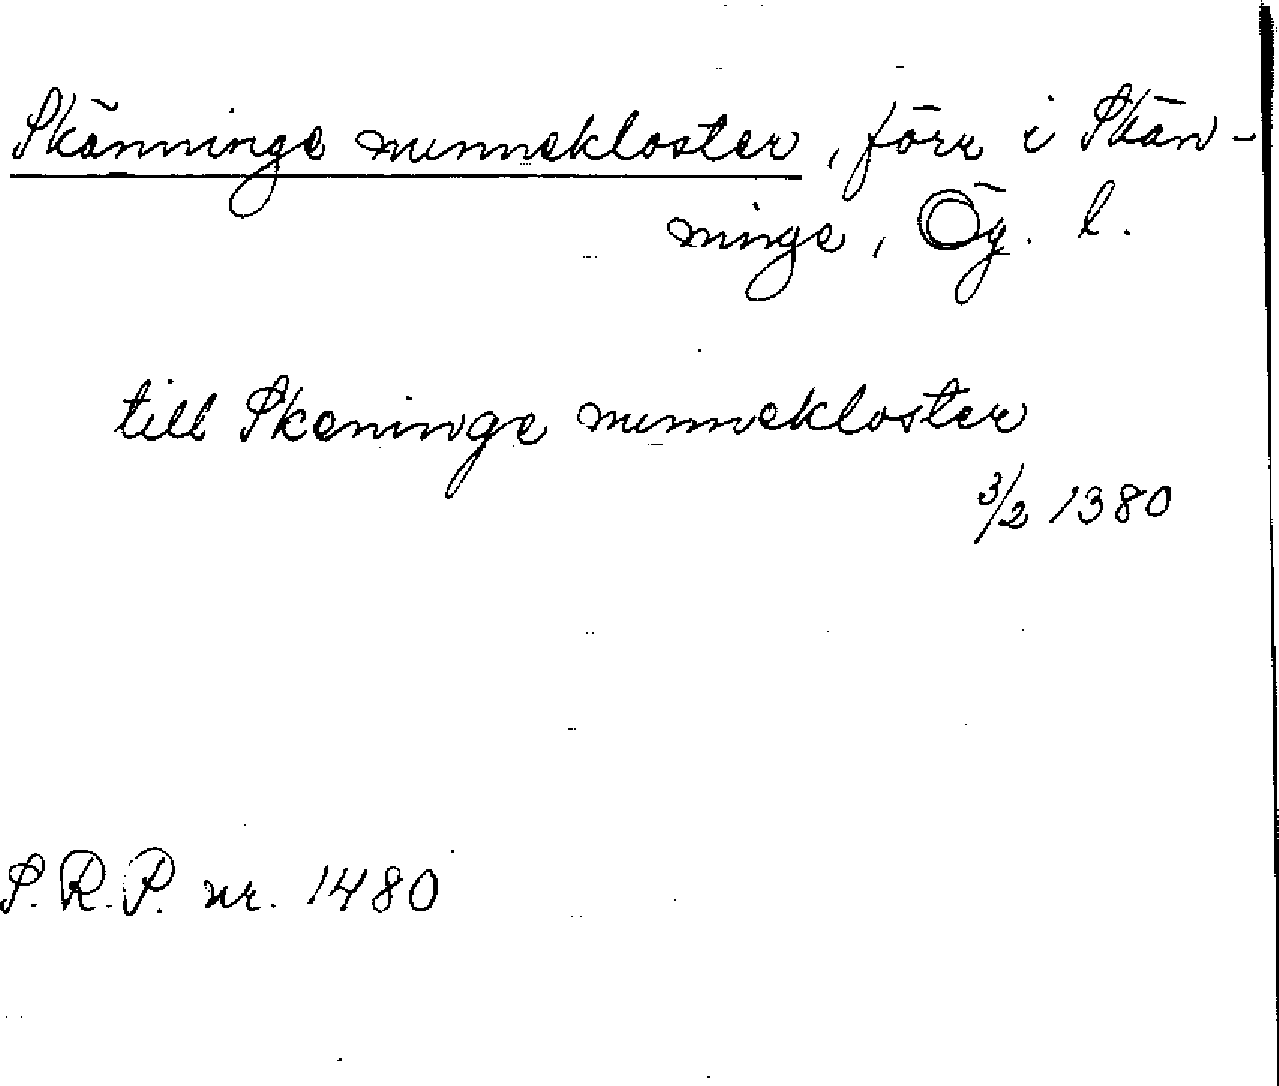 Skänninge nunnekloster, förr i Skän-
ninge, Ög. l.
till Skeninge nunnekloster
3/2 1380
S.R.P. nr. 1480